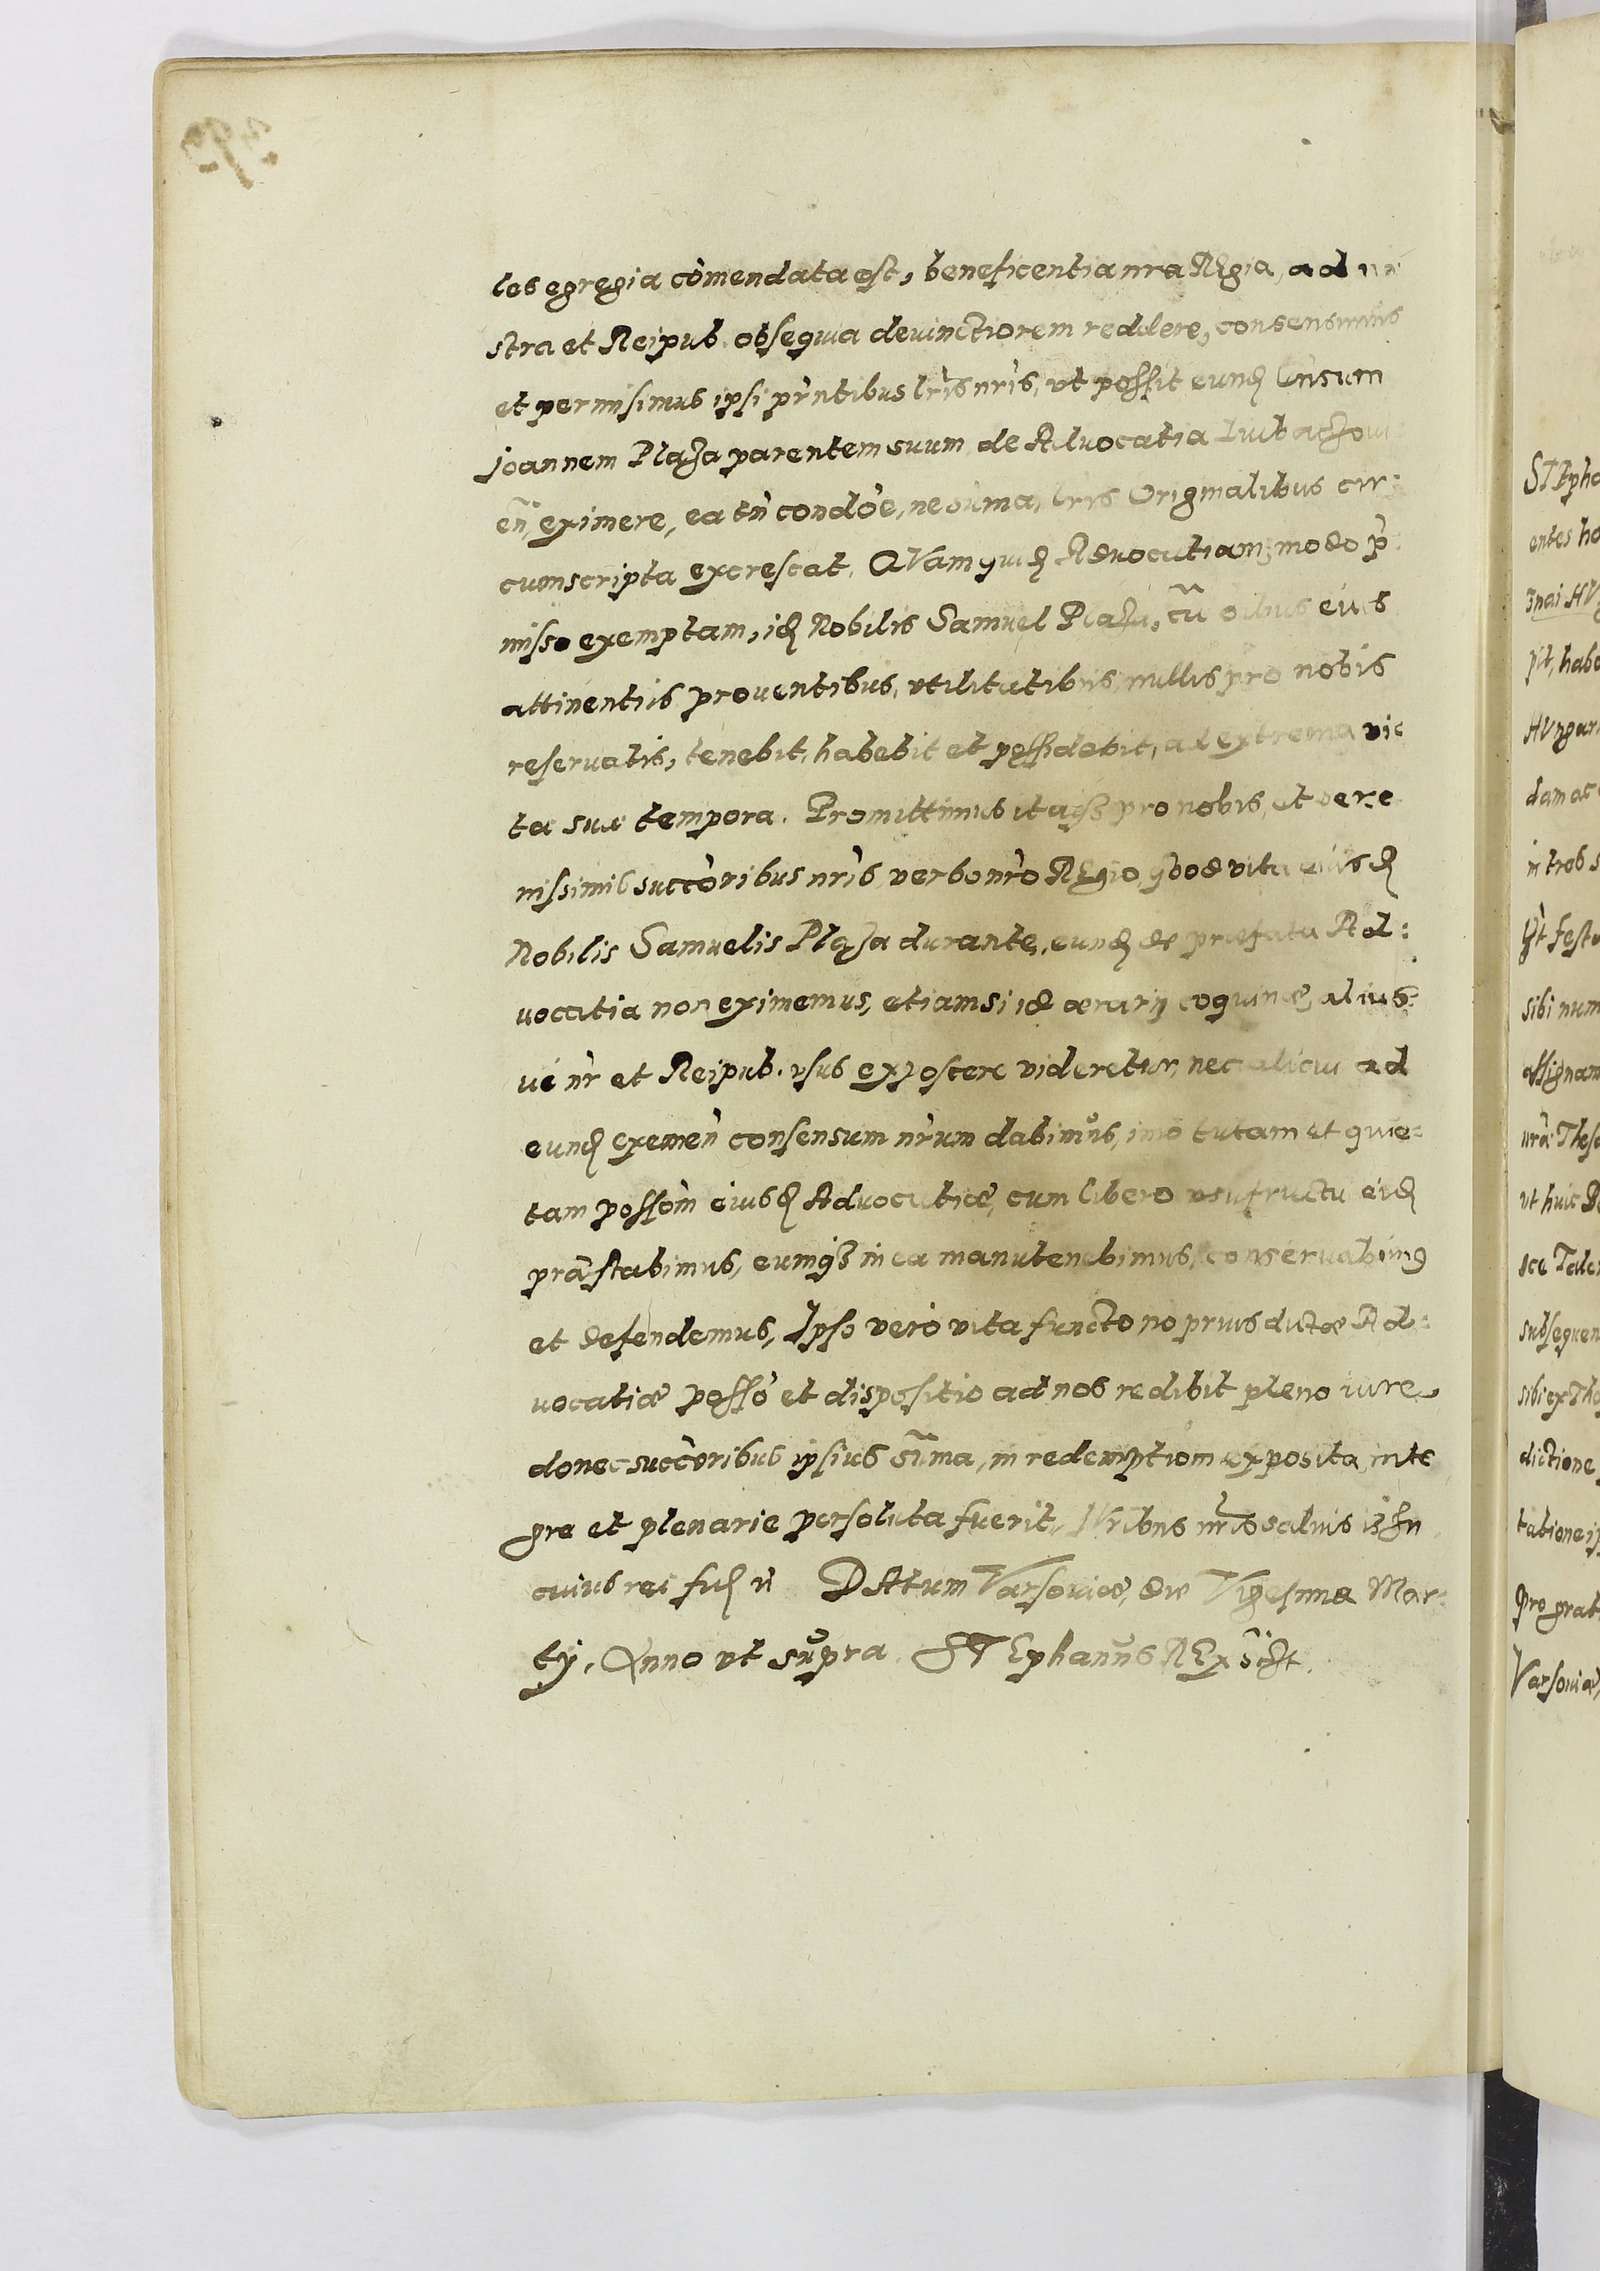 les egregia cômendata est, beneficentia nra REgia, ad
stra et Reipub. obsequia deuinctiorem reddere, consensimus
et permisimus ipsi prǹtibus lris nris, vt possit eund
Joannem Plaza parentem suum de Aduocatia
eñ, eximere, ea tǹ condôe, ne sum̃a, lris Originalibus cir:
cumscripta excrescat. QVam quid Aduocatiam, modo p̀
misso exemptam, id Nobilis Samuel Plaza, cũ oibus eius
attinentiis prouentibus, vtilitatibus, nullis pro nobis
reseruatis, tenebit, habebit et possidebit, ad extrema vi
tæ suæ tempora. Promittimus itaq3 pro nobis, et sere
nissimis succòribus nris verbo nr̀o REgio, quod vita eiusd
Nobilis Samuelis Plaza durante, eund de præfata Ad:
uocatia non eximemus, etiamsi id ærarij coquinæ, alius:
ue nr̀ et Reipub. vsus exposcere videretur, nec alicui ad
eund exemen̄ consensum nr̀um dabimus, imo tutam et quie:
tam possom̀ eiusd Aduocatiæ, cum libero vsufructu eid
præstabimus, eumq3 in ea manutenebimus, conseruabimus
et defendemus, Ipso verò vita functo no prius dictæ Ad:
uocatiæ posso et dispositio ad nos redibit pleno iure,
donec succòribus ipsius sum̃a, in redemptiom̀ exposita, inte
gre et plenarie persoluta fuerit, Iuribus nr̀is saluis
cuius rei DAtum Varsouiæ, die Vigesima Mar:
tij, Anno vt supra. STEphanus REx
STEpha
entes
pit, habe
HVngar
dam ac
sibi num
assignam
vt huic
sce Tale
subsequen
dictione
tatione
Pro grat
Varsouiæ,